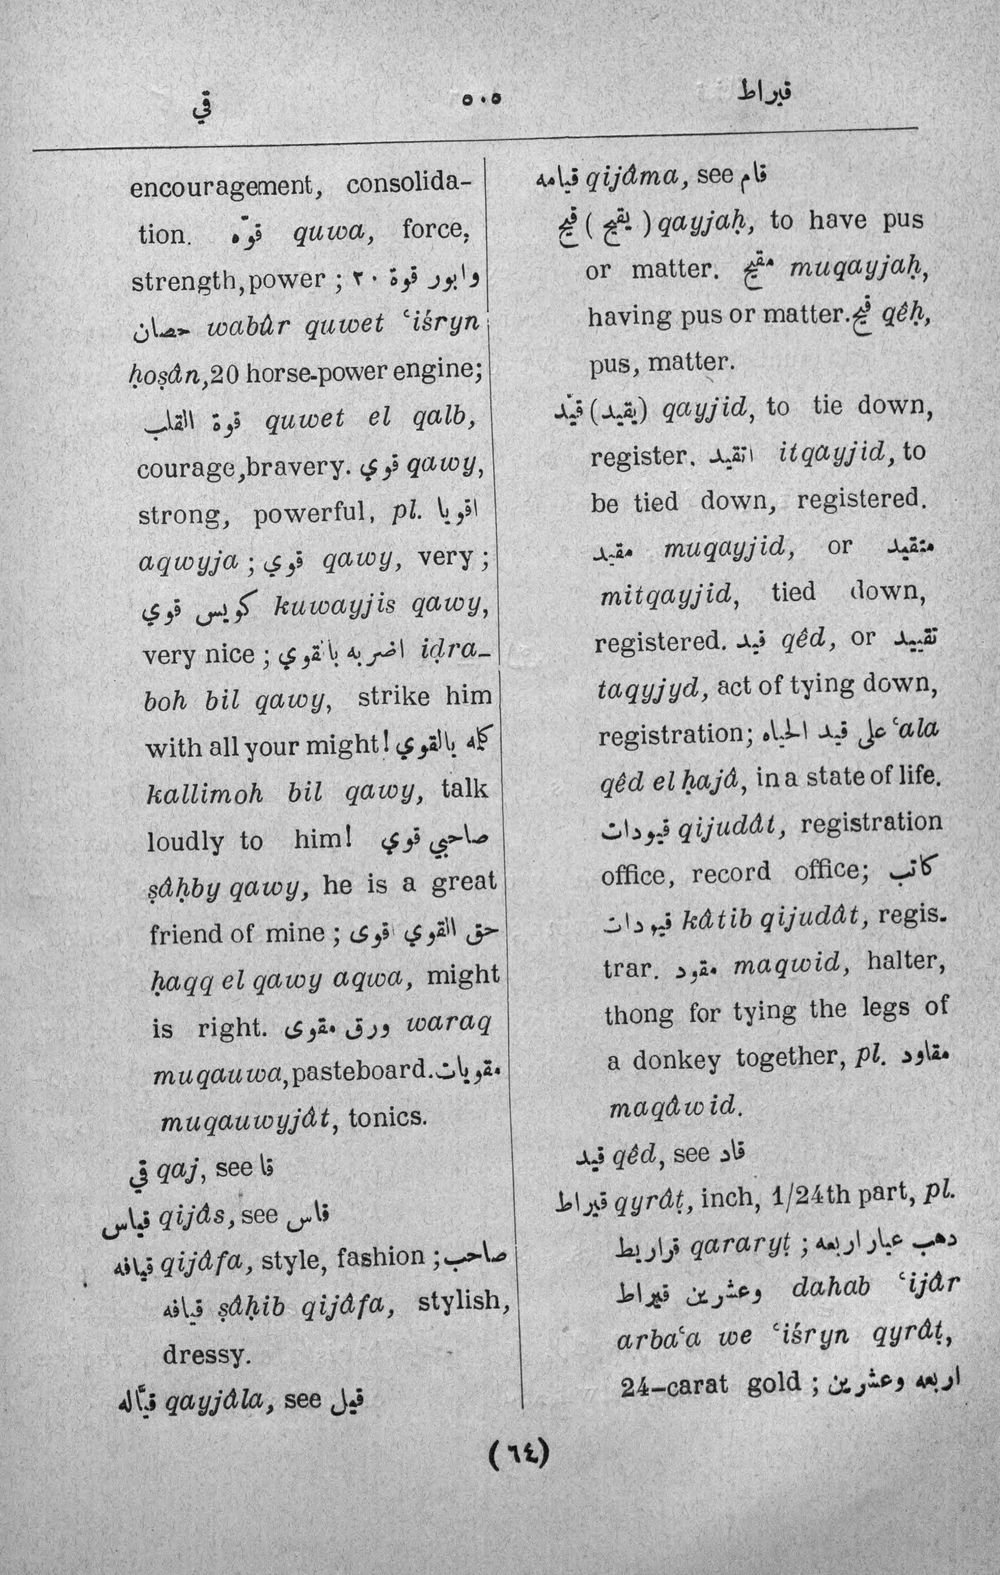 قي ٥٠٥ قيراط
encouragement, consolida-
tion. قوّه quwa, force,
strength, power ; وابور قوة ٢٠
حصان wabûr quwet ʿiśryn
ḥoṣân, 20 horse-power engine;
قوة القلب quwet el qalb,
courage, bravery. قوي qawy,
strong, powerful, pl. اقويا
aqwyja ; قوي qawy, very ;
كويس قوي kuwayjis qawy,
very nice ; اضربه بالقوي iḍra-
boh bil qawy, strike him
with all your might! كله بالقوي
kallimoh bil qawy, talk
loudly to him! صاحبي قوي
ṣâḥby qawy, he is a great
friend of mine ; حق القوي اقوى
ḥaqq el qawy aqwa, might
is right. ورق مقوى waraq
muqauwa, pasteboard. مقويات
muqauwyjât, tonics.
قي qaj, see قا
قياس qijâs, see قاس
قيافه qijâfa, style, fashion ; صاحب
قيافه ṣâḥib qijâfa, stylish,
dressy.
قيّاله qayjâla, see قيل
قيامه qijâma, see قام
قيح ( يقيح ) qayjaḥ, to have pus
or matter. مقيح muqayjaḥ,
having pus or matter. قيح qêḥ,
pus, matter.
قيّد (يقيد) qayjid, to tie down,
register. اتقيد itqayjid, to
be tied down, registered.
مقيد muqayjid, or متقيد
mitqayjid, tied down,
registered. قيد qêd, or تقييد
taqyjyd, act of tying down,
registration; على قيد الحياه ʿala
qêd el ḥajâ, in a state of life.
قيودات qijudât, registration
office, record office; كاتب
قيودات kâtib qijudât, regis-
trar. مقود maqwid, halter,
thong for tying the legs of
a donkey together, pl. مقاود
maqâwid.
قيد qêd, see قاد
قيراط qyrâṭ, inch, 1/24th part, pl.
قراريط qararyṭ ; دهب عيار اربعه
وعشرين قيراط dahab ʿijâr
arbaʿa we ʿiśryn qyrâṭ,
24-carat gold ; اربعه وعشرين
(٦٤)